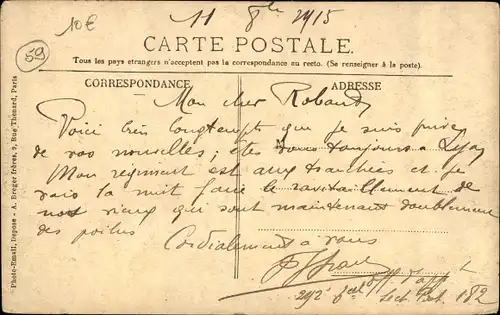 10€
11 8bre 1915
59
CARTE POSTALE.
Tous les pays étrangers n'acceptent pas la correspondance au recto. (Se renseigner à la poste).
CORRESPONDANCE
ADRESSE
Mon cher Robaud
Voici très longtempts que je suis privé
de vos nouvelles ; êtes vous toujours à Lyon
Mon régiment est aux tranchées et je
vais la nuit faire le ravitaillement de
nos vieux qui sont maintenant doublement
des poilus
Cordialement à vous
292e Sect. Post. 182
Photo-Email, Déposé - A. Breger frères, 9, Rue Thénard, Paris